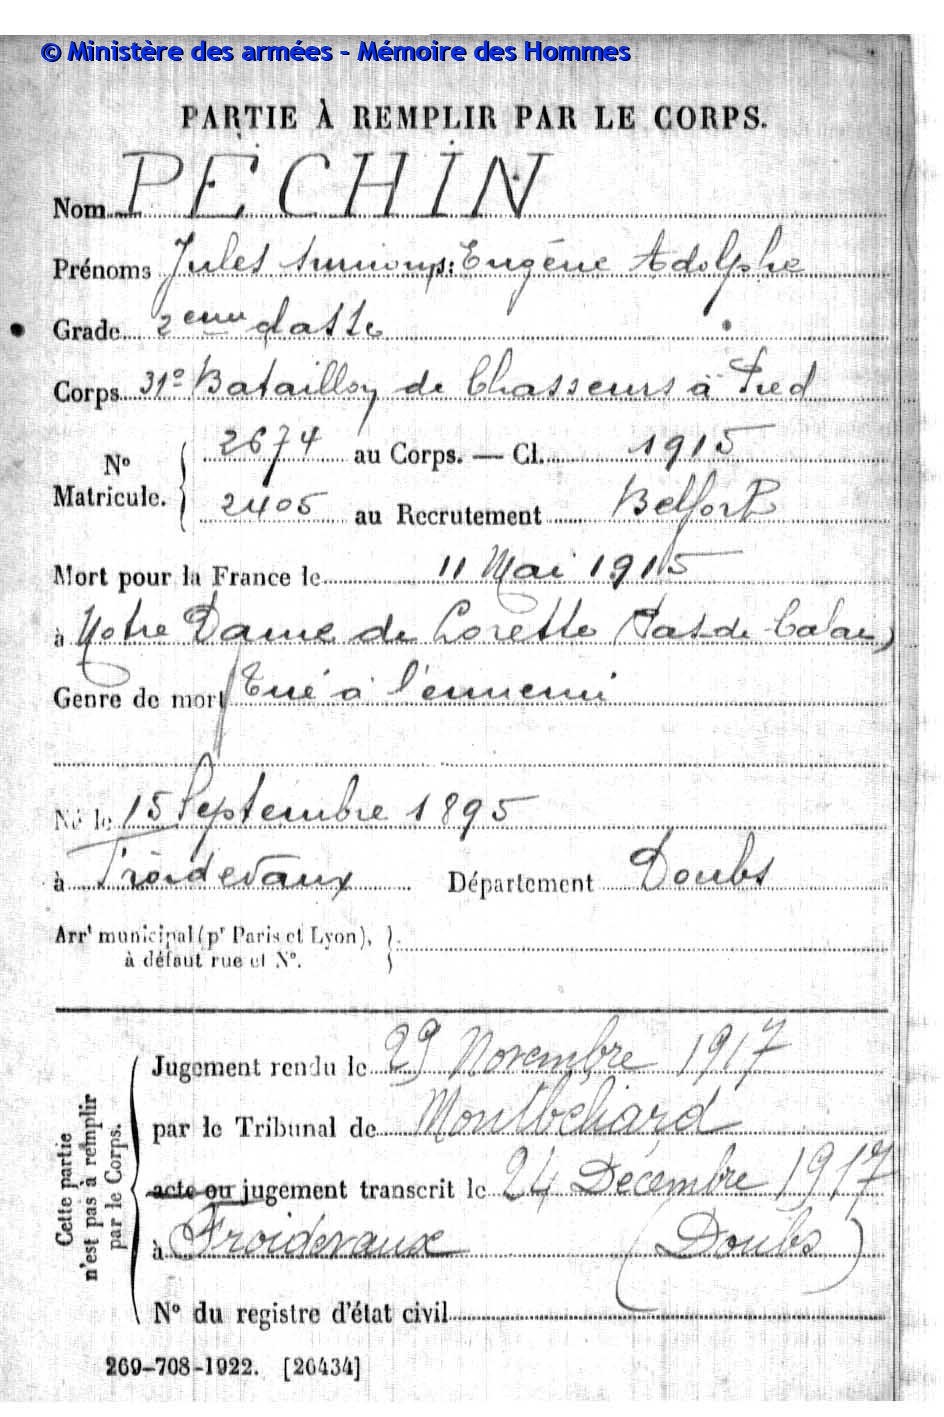 © Ministère des armées - Mémoire des Hommes
PARTIE À REMPLIR PAR LE CORPS.
Nom PECHIN
Prénoms Jules Eugène Adolphe
Grade 2eme classe
Corps 31e Bataillon de Chasseurs à Pied
No Matricule. { 2674 au Corps. — Cl. 1915
2405 au Recrutement Belfort
Mort pour la France le 11 Mai 1915
à Notre Dame de Lorette (Pas de Calais)
Genre de mort Tué à l'ennemi
Né le 15 Septembre 1895
à Froidevaux Département Doubs
Arrt municipal (pr Paris et Lyon), }
à défaut rue et No.
Cette partie n'est pas à remplir par le Corps.
Jugement rendu le 29 Novembre 1917
par le Tribunal de Montbéliard
acte ou jugement transcrit le 24 Décembre 1917
à Froidevaux (Doubs)
No du registre d'état civil
269-708-1922. [26434]